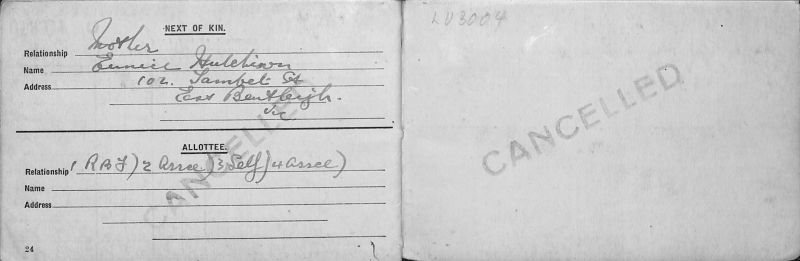 NEXT OF KIN.
Relationship Mother
Name Eunice Hutchison
Address 102. St
East Bentleigh.
Vic
CANCELLED
ALLOTTEE.
Relationship 1 RBF) 2 Assee) 3 Self) 4 Assee)
Name
Address
24
LU3004
CANCELLED